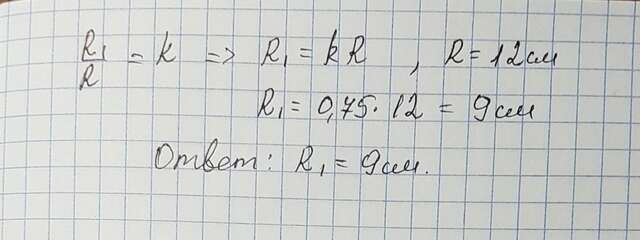 R₁/R = k => R₁ = kR , R = 12 см
R₁ = 0,75 · 12 = 9 см
Ответ: R₁ = 9 см.